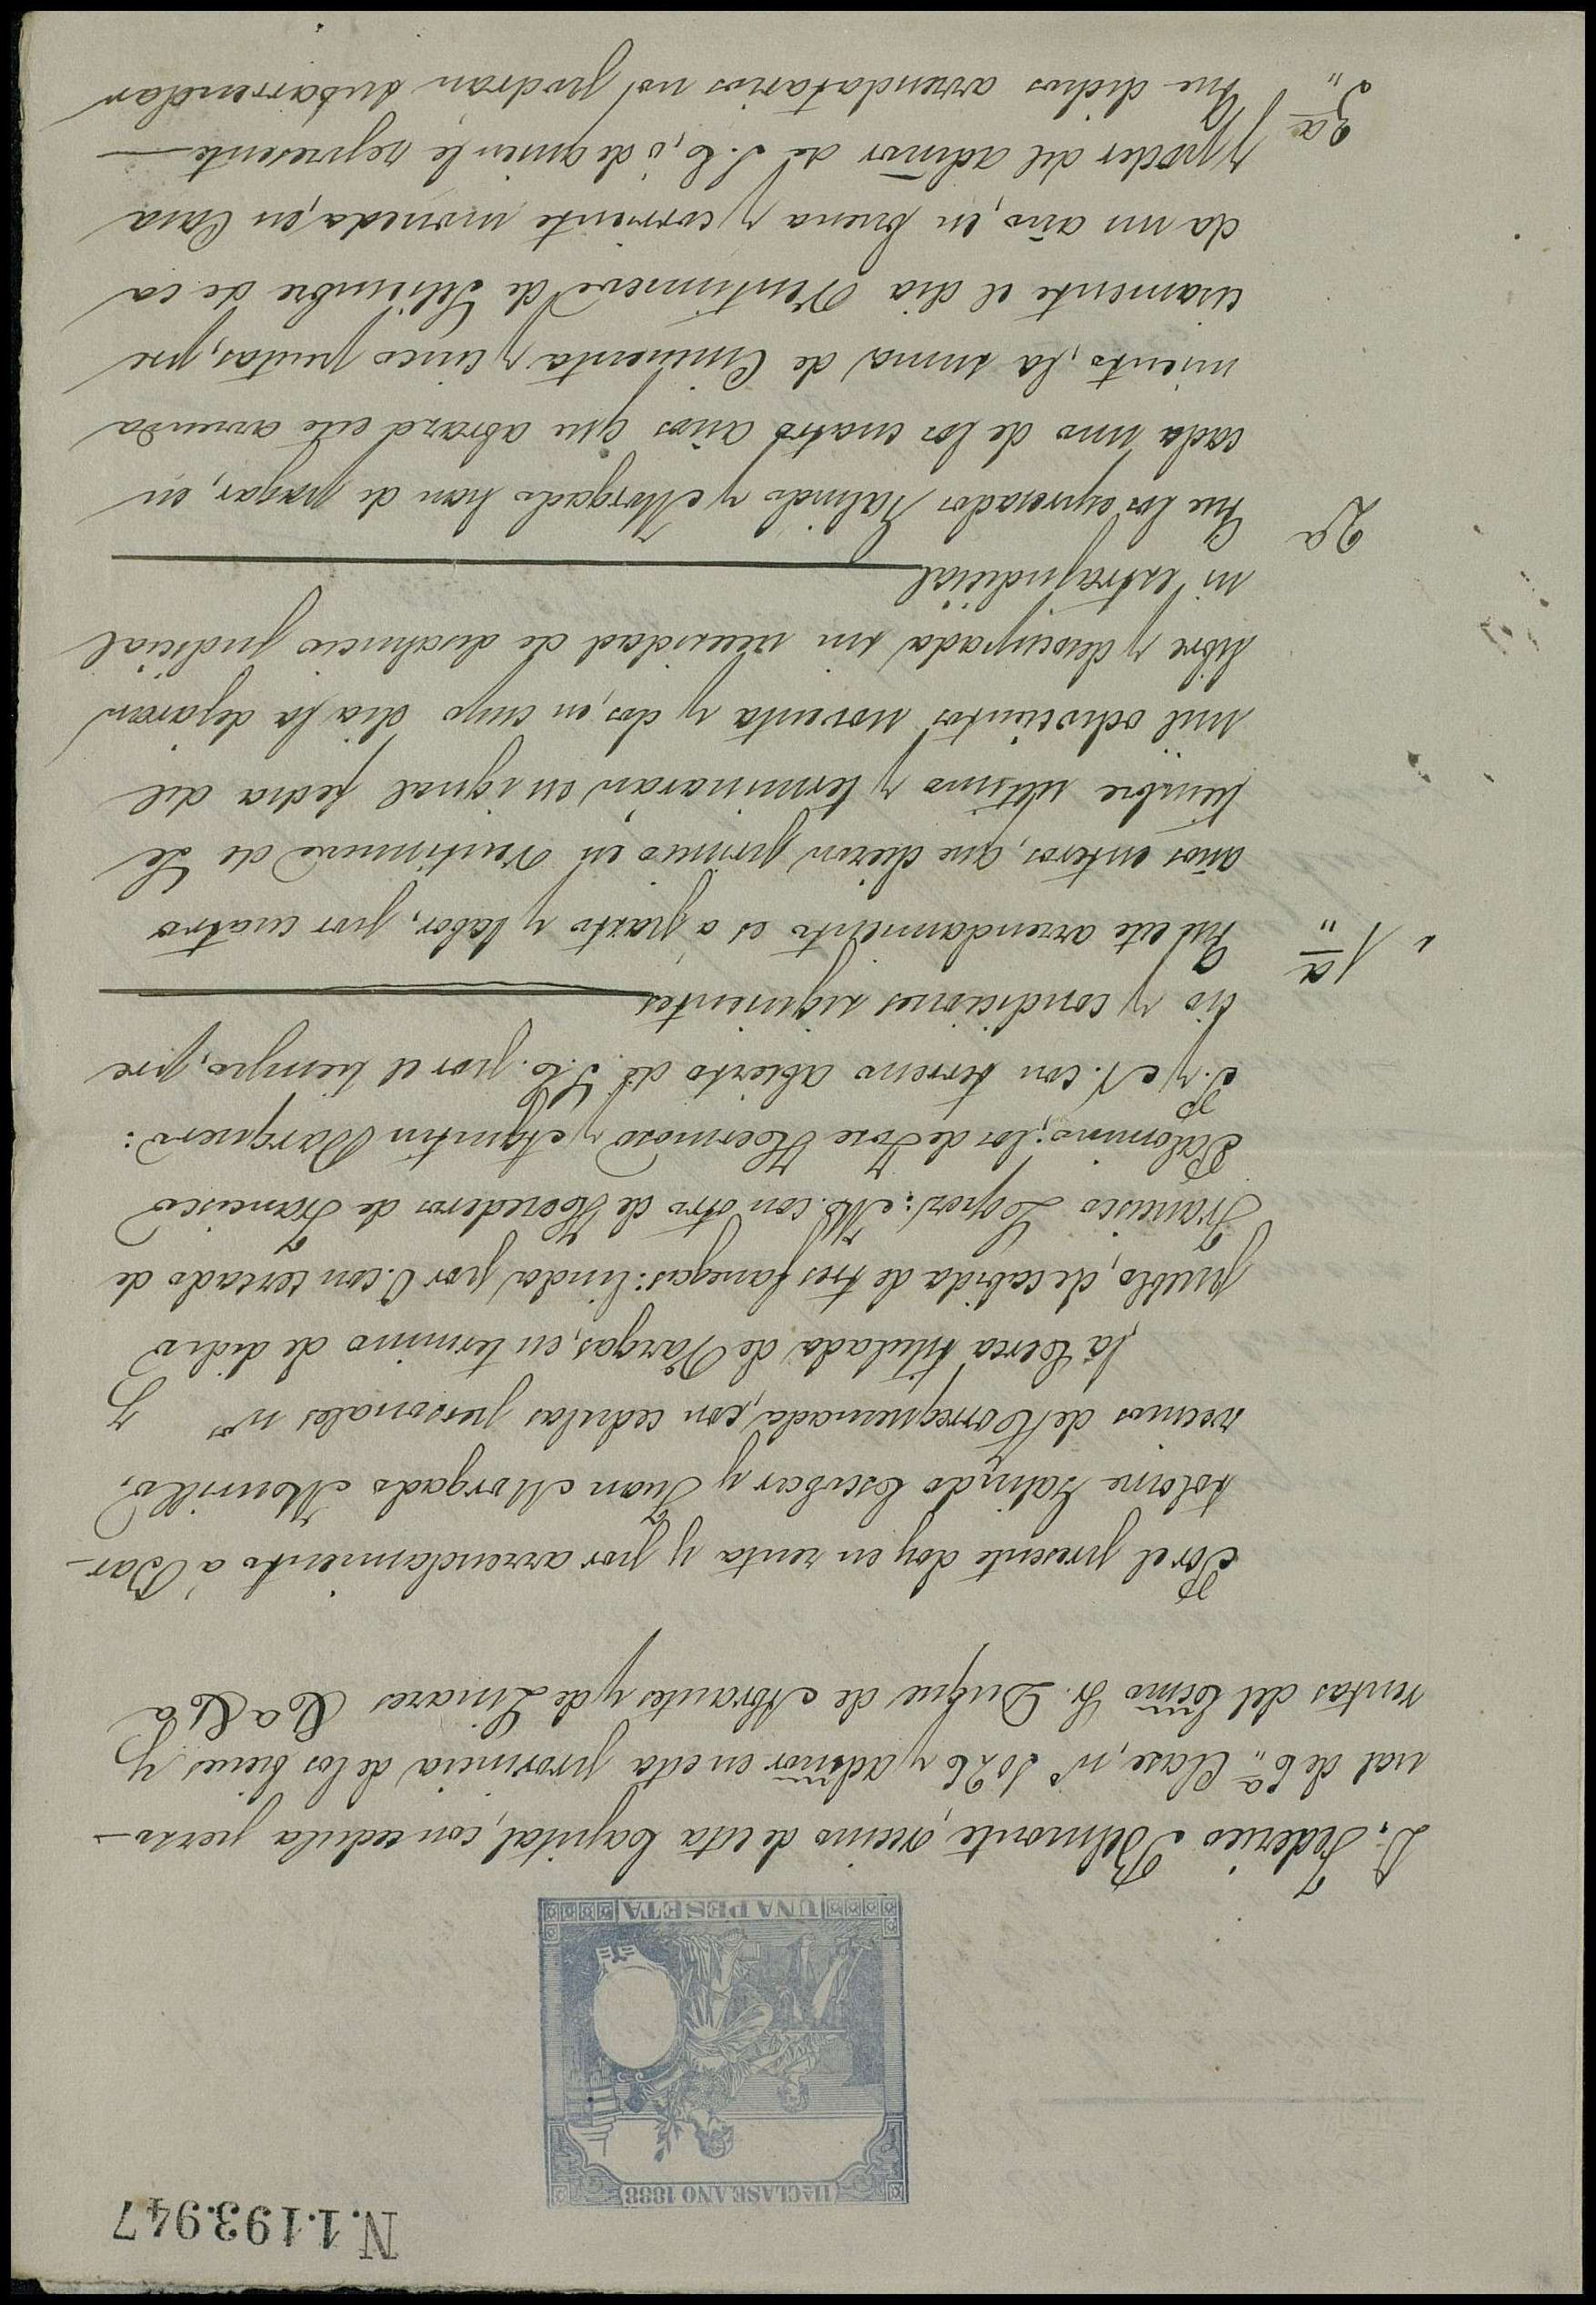 N.1.193.947
11ª CLASE AÑO 1888
UNA PESETA
D. Federico Belmonte, vecino de esta Capital, con cedula perso-
nal de 6ª Clase, nº 5026 y admor en esta provincia de los bienes y
rentas del Excmo Sr. Duque de Abrantes y de Linares &a &a
Por el presente doy en renta y por arrendamiento á Bar-
tolome Galindo Escobar y Juan Morgado Morillo,
vecinos de Torrequemada, con cedulas personales nos y
la Cerca titulada de Vargas, en termino de dicho
pueblo, de cabida de tres fanegas: linda por O. con cercado de
Francisco Lopez: M. con otro de Herederos de Francisco
Palomino; los de Jose Hermoso y Agustin Barquero:
P. y N. con terreno abierto de S.E. por el tiempo, pre
cio y condiciones siguientes
1ª Que este arrendamiento es a pasto y labor, por cuatro
años enteros, que dieron principio en Veintinueve de Se
tiembre ultimo y terminarán en igual fecha del
mil ochocientos noventa y dos, en cuyo dia la dejaran
libre y desocupada sin necesidad de desahucio judicial
ni extrajudicial
2ª Que los expresados Galindo y Morgado han de pagar, en
cada uno de los cuatro años que abraza este arrenda
miento, la suma de Cincuenta y cinco pesetas, pre
cisamente el dia Veintinueve de Setiembre de ca
da un año, en buena y corriente moneda, en Casa
y poder del admor de S.E., ó de quien le represente
3ª Que dichos arrendatarios no podran subarrendar